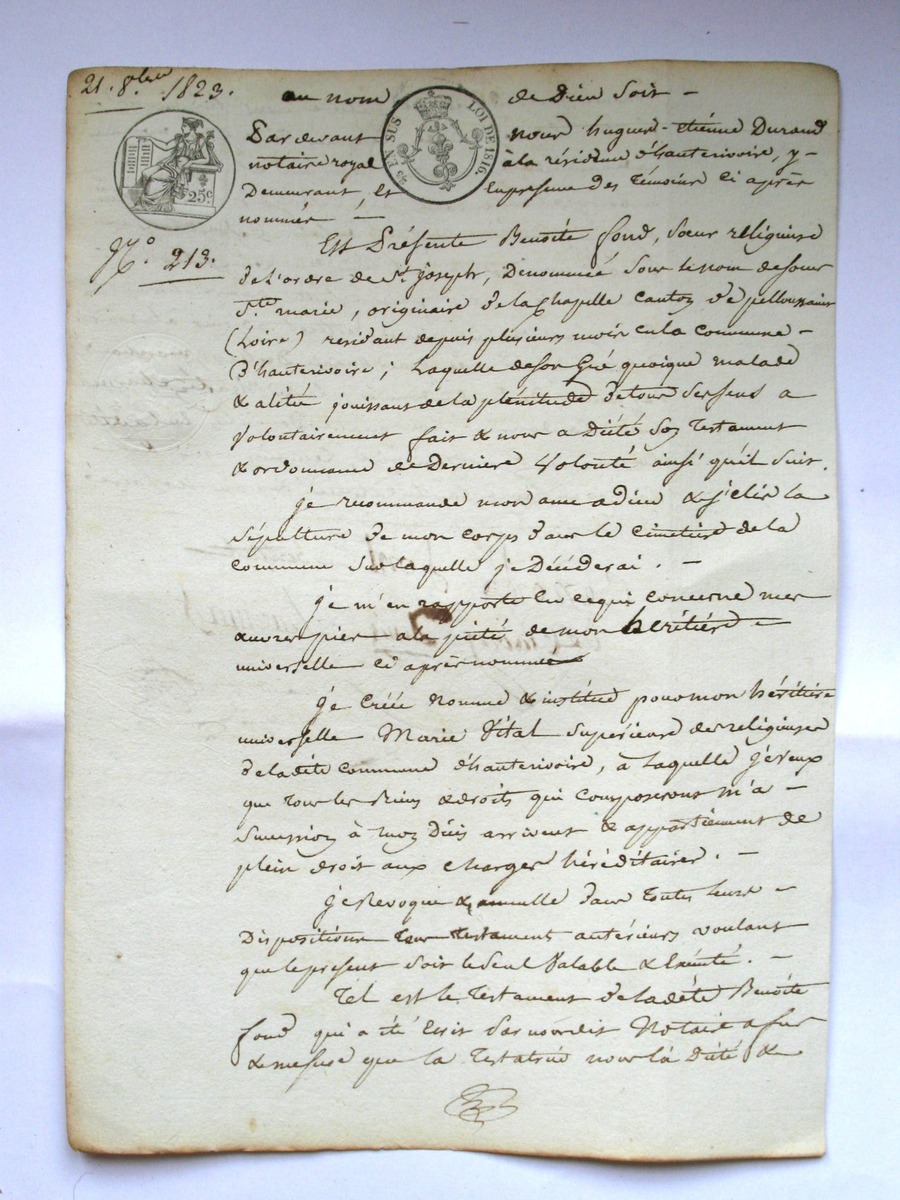 21. 8.bre 1823.
au nom de Dieu Soit -
EN SUS LOI DE 1816.
25c
Pardevant nous hugues-étienne Durand
notaire royal à la résidence d'hauterivoire, y -
Demeurant, Et En presence des témoins ci après
nommés -
N.o 213.
Est Présente Benoite fond, Sœur religieuse
de l'ordre de St joseph, Dénommée Sous le nom de sœur
Ste marie, originaire de la Chapelle canton de pellussin
(Loire) residant depuis plusieurs mois en la commune -
d'hauterivoire ; Laquelle de son Gré quoique malade
& alitée jouissant de la plénitude de tous Ses sens a
volontairement fait & nous a Dicté Son Testament
& ordonnance de Derniere volonté ainsi qu'il Suit.
je recommande mon ame a dieu & j'élis la
Sépulture de mon corps dans le cimetiere de la
commune Sur laquelle je Décéderai. -
je m'en rapporte En ce qui concerne mes
œuvres pies a la piété de mon héritiére -
universelle ci après nommée
je créée nomme & institue pour mon héritiére
universelle Marie Vital Supérieure des religieuses
de la dite commune d'hauterivoire, à laquelle je veux
que tous les Biens & droits qui composerons m'a -
Succession à mon Décès arrivent & appartiennent de
plein droit aux charges héréditaires. -
je Revoque & annulle dans toutes leurs -
Dispositions tous testament antérieurs voulant
que le present Soit le Seul Valable & Exécuté. -
Tel est le Testament de la dite Benoite
fond qui a été Ecrit Par nous dit Notaire a fur
& mesure que la Testatrice nous l'a Dicté &